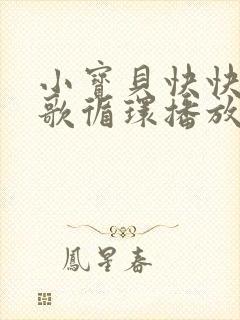 小寳貝快快
歌循環播放
鳳星春